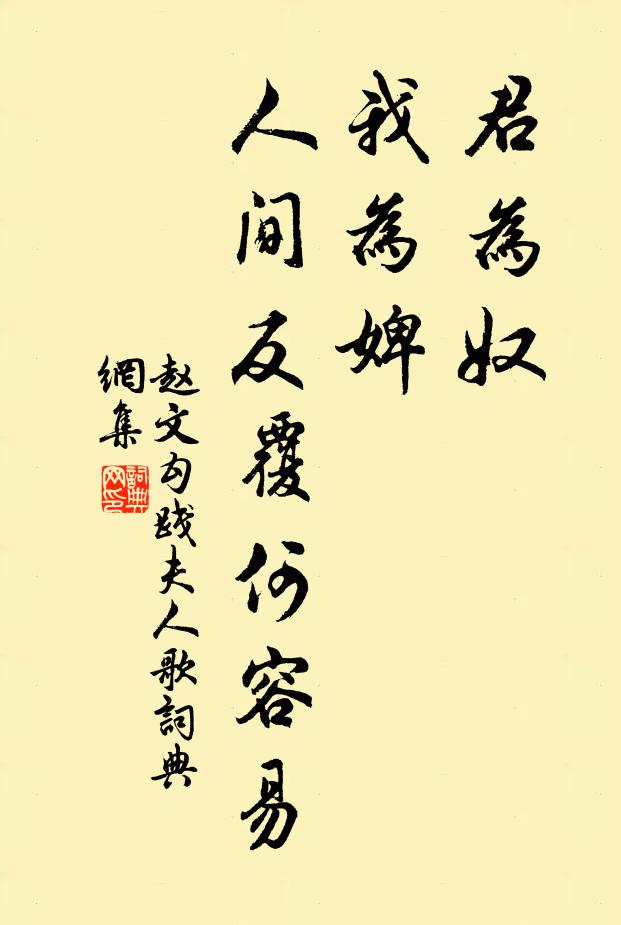 君為奴
我為婢
人间反覆何容易
赵文勾践夫人歌詞典
網集
詞典
网印